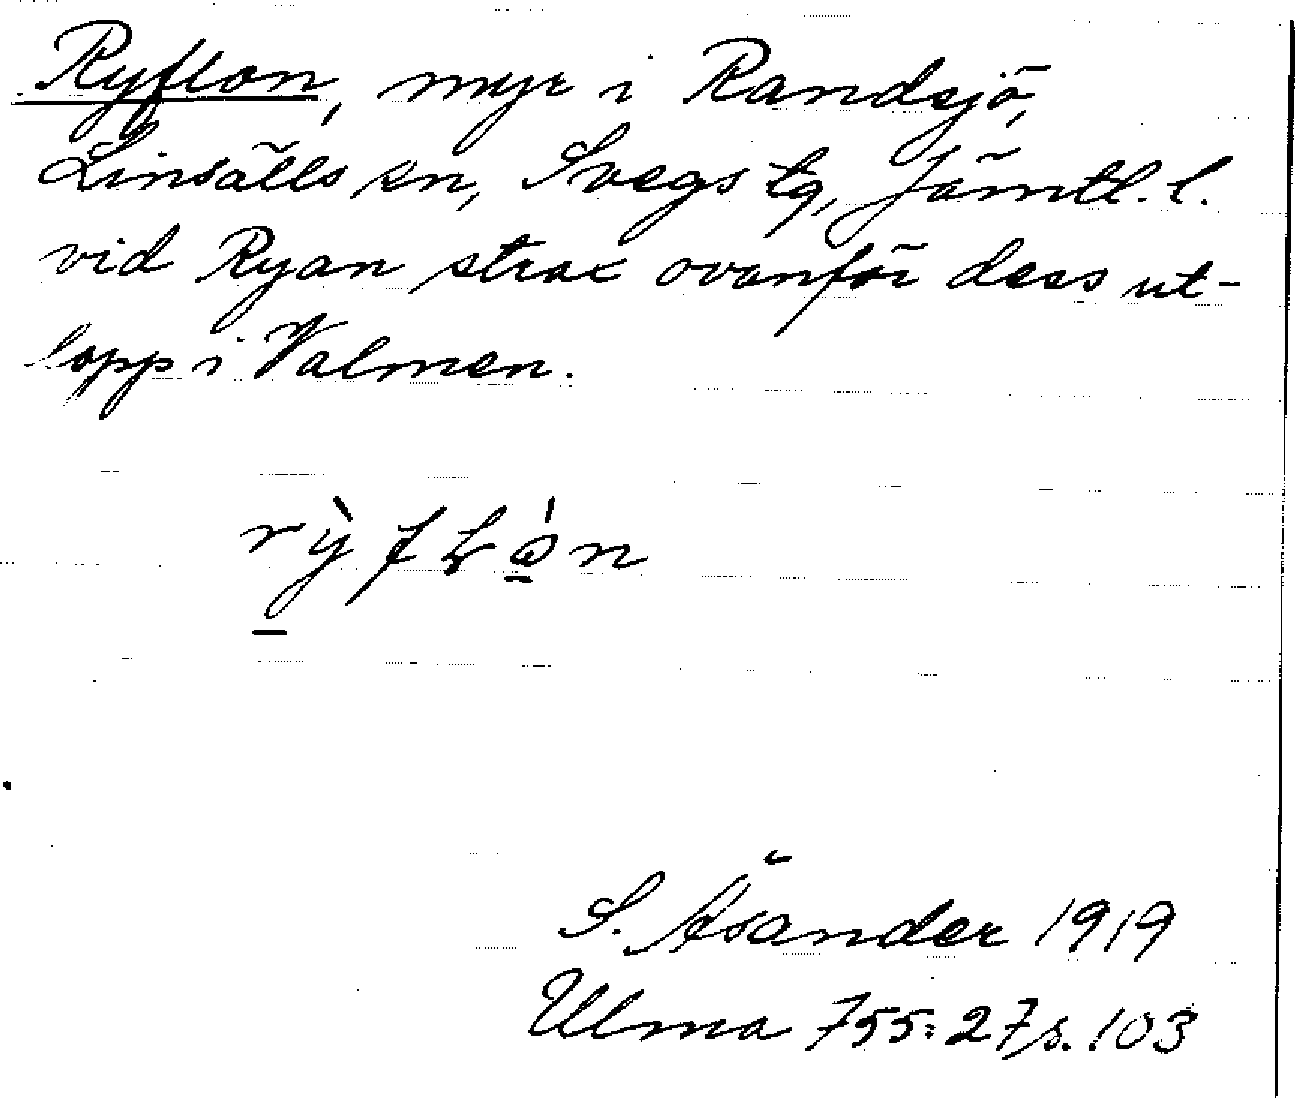 Ryflon, myr i Randsjö,
Linsälls sn, Svegs tg, Jämtl. l.
vid Ryan strax ovanför dess ut-
lopp i Valmen.
S. Åsander 1919
Ulma 755:27 s. 103